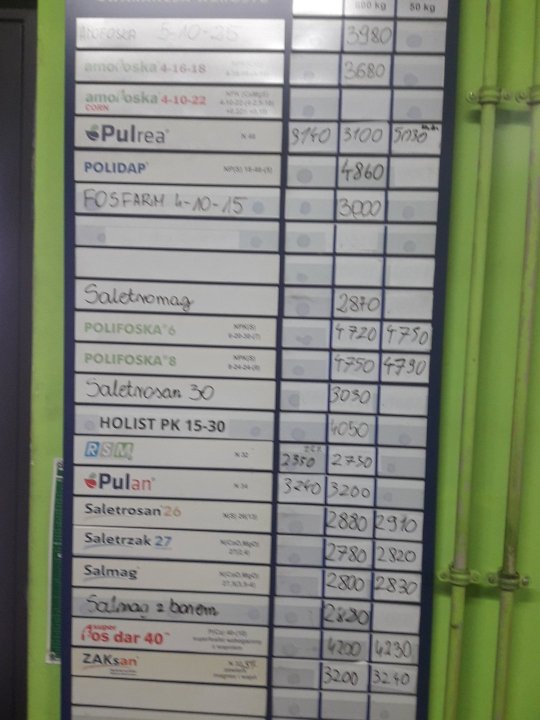 600 kg 50 kg
5-10-25 3980
amofoska 4-16-18 3680
amofoska 4-10-22
CORN
Pulrea N 46 3140 3100
POLIDAP 4860
FOSFARM 4-10-15 3000
Saletromag 2870
POLIFOSKA 6 NPK(S) 4720 4750
POLIFOSKA 8 NPK(S) 4750 4790
Saletrosan 30 3030
HOLIST PK 15-30 4050
RSM N 32 2350 2730
Pulan N 34 3240 3200
Saletrosan 26 N(S) 26(13) 2880 2910
Saletrzak 27 N(CaO,MgO) 2780 2820
Salmag N(CaO,MgO) 2800 2830
Salmag z borem 2830
super
fos dar 40 4200 4230
ZAKsan 3200 3240